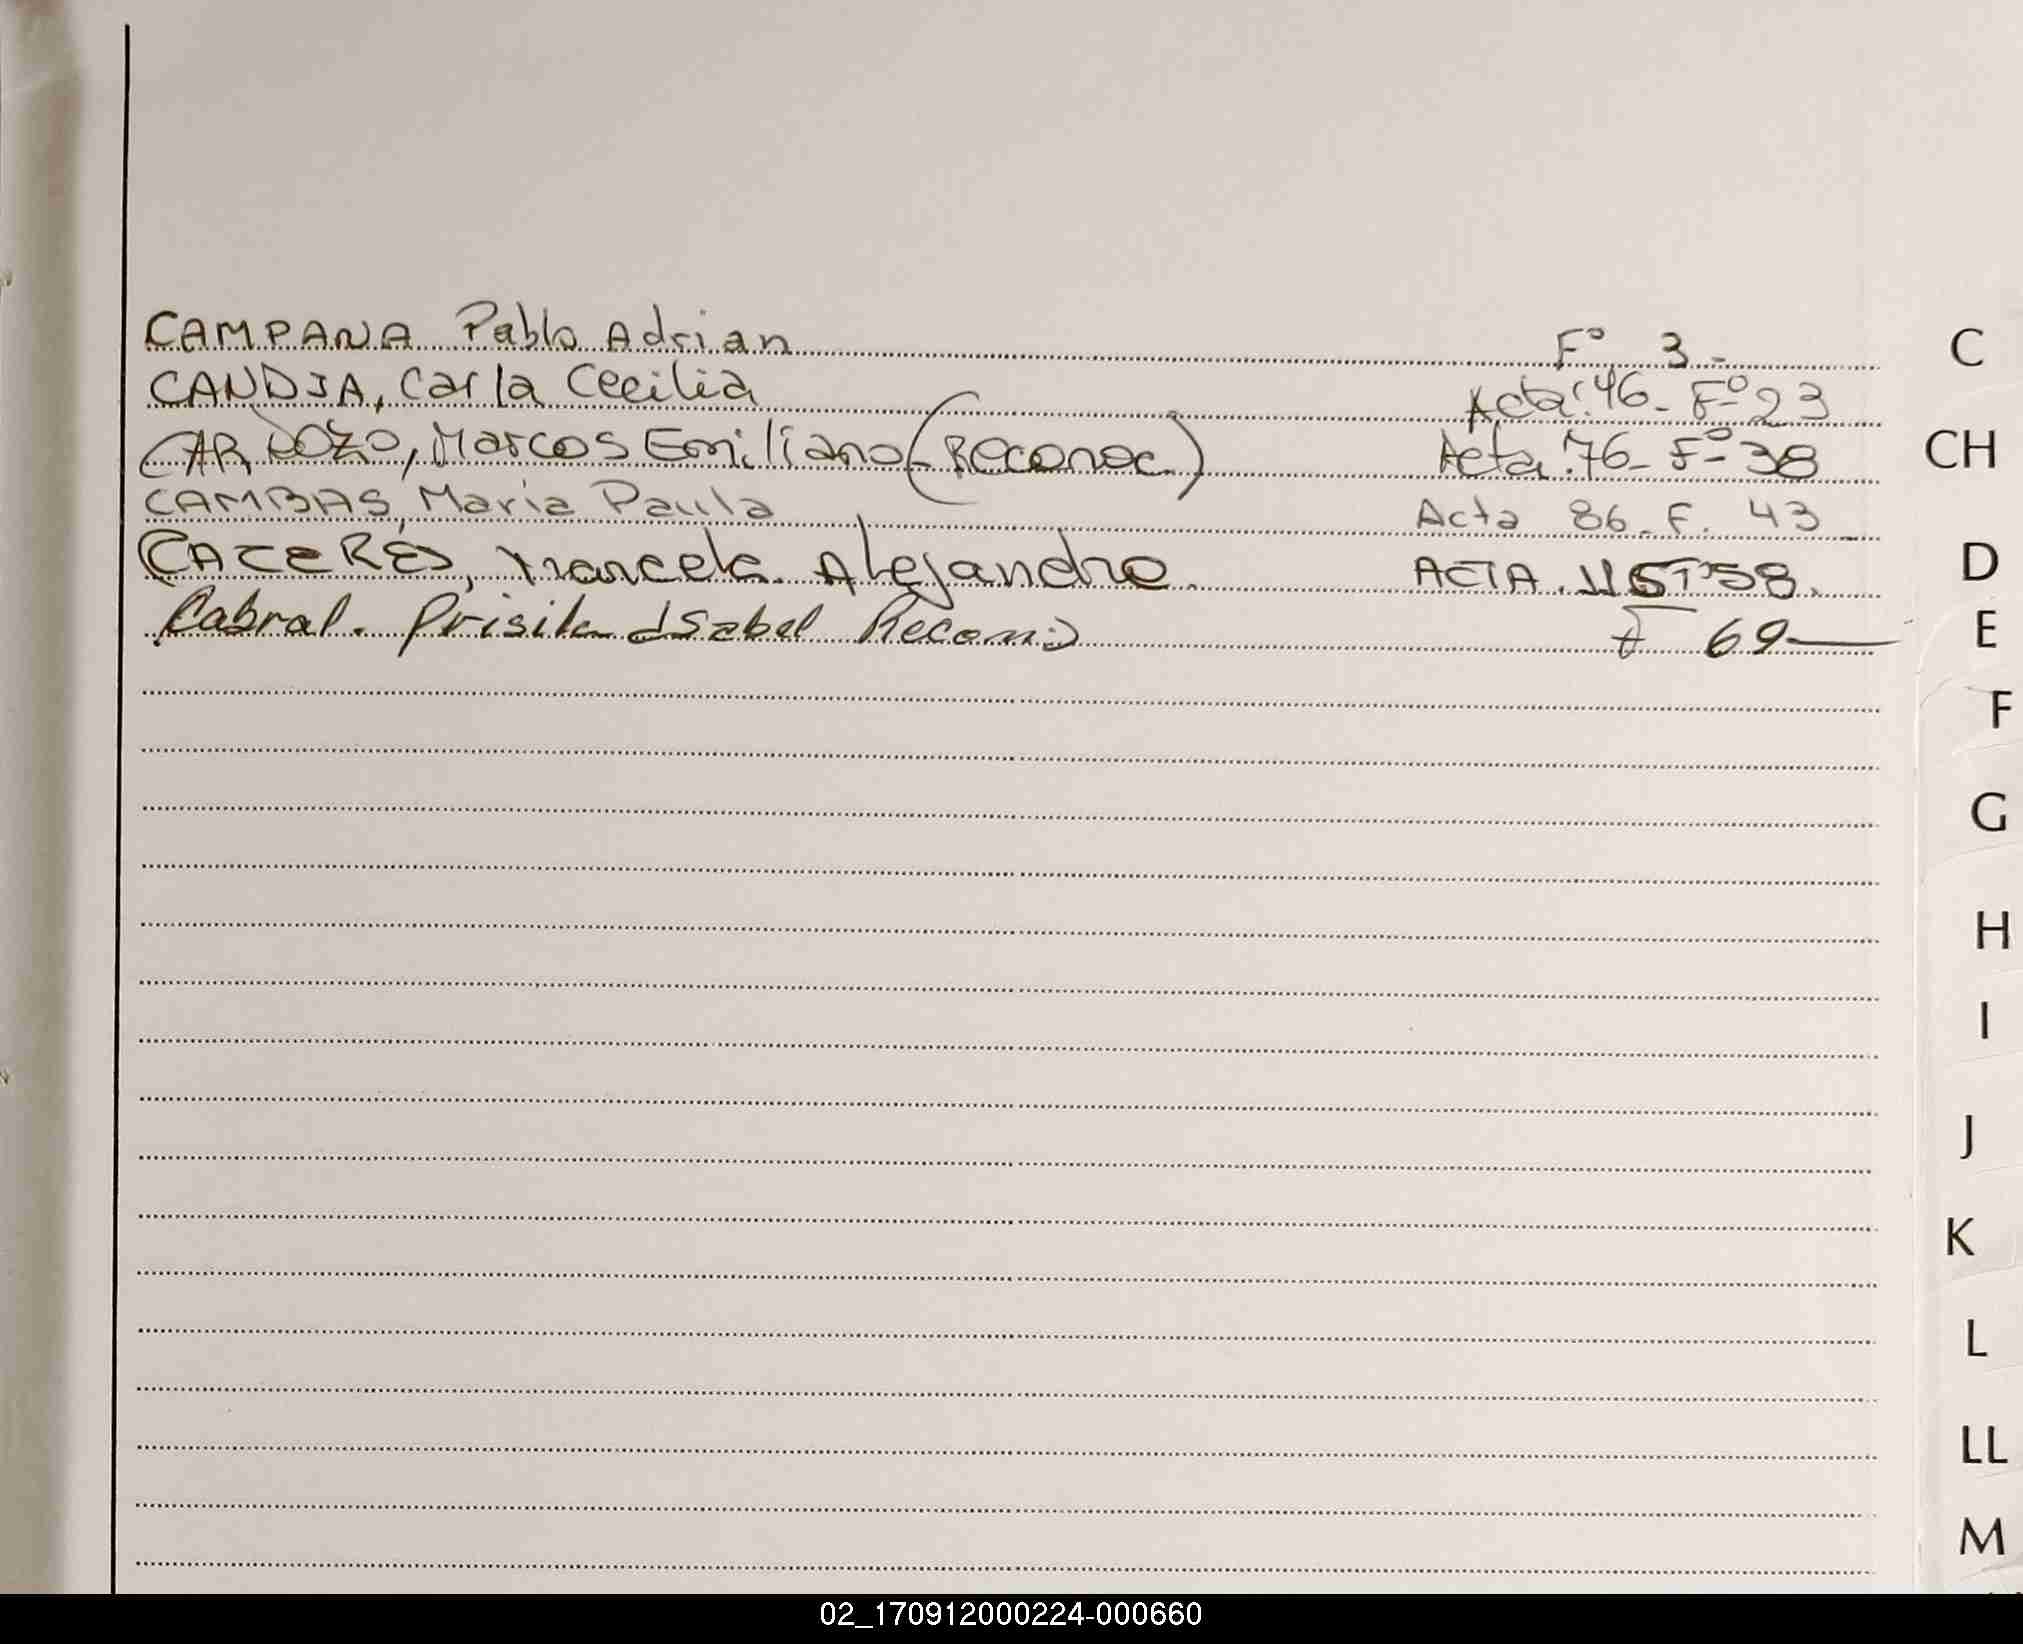 CAMPANA Pablo Adrian F° 3-
CANDIA, Carla Cecilia Acta: 46- F° 23
CARDOZO, Marcos Emiliano (Reconoc.) Acta: 76- F° 38
CAMBAS, Maria Paula Acta 86- F. 43
CACERES, Marcela Alejandra. ACTA. 115 F° 58.
Cabral. Prisila Isabel Recon. F 69
C
CH
D
E
F
G
H
I
J
K
L
LL
M
02_170912000224-000660